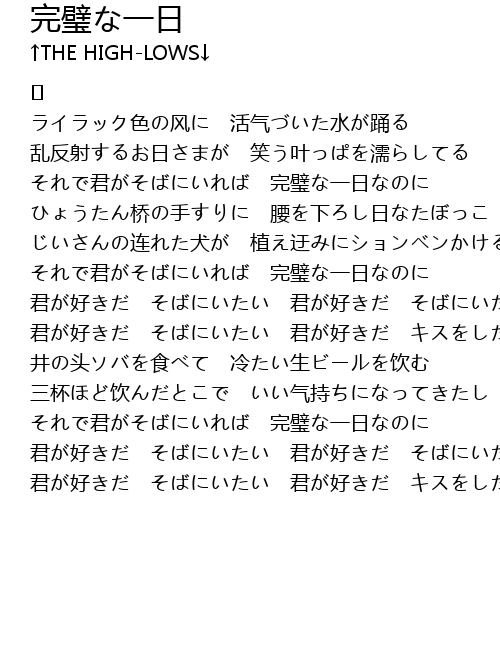 完璧な一日
↑THE HIGH-LOWS↓
ライラック色の风に　活气づいた水が踊る
乱反射するお日さまが　笑う叶っぱを濡らしてる
それで君がそばにいれば　完璧な一日なのに
ひょうたん桥の手すりに　腰を下ろし日なたぼっこ
じいさんの连れた犬が　植え迂みにションベンかける
それで君がそばにいれば　完璧な一日なのに
君が好きだ　そばにいたい　君が好きだ　そばにいた
君が好きだ　そばにいたい　君が好きだ　キスをした
井の头ソバを食べて　冷たい生ビールを饮む
三杯ほど饮んだとこで　いい气持ちになってきたし
それで君がそばにいれば　完璧な一日なのに
君が好きだ　そばにいたい　君が好きだ　そばにいた
君が好きだ　そばにいたい　君が好きだ　キスをした